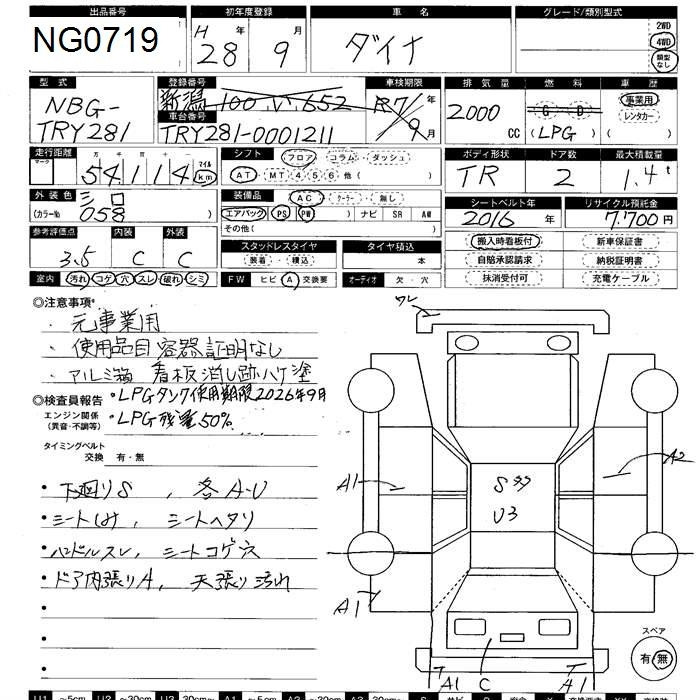 出品番号 初年度登録 車名 グレード/類別型式
NG0719 H 28 年 9 月 ダイナ 2WD 4WD 類型なし
型式 登録番号 車検期限 排気量 燃料 車歴
NBG-TRY281 新潟 100 い 652 R7 年 9 月 2000 CC G D (LPG) 事業用 レンタカー ( )
車台番号
TRY281-0001211
走行距離 シフト フロア コラム ダッシュ ボディ形状 ドア数 最大積載量
マーク 万 千 百 十 一 マイル km
54114 AT MT 4 5 6 他( ) TR 2 1.4t
外装色 三口 装備品 AC クーラー 無し シートベルト年 リサイクル預託金
(カラーNo 058 ) エアバック PS PW ナビ SR AW 2016年 7,700円
その他( )
参考評価点 内装 外装 スタッドレスタイヤ タイヤ積込 搬入時看板付 新車保証書
3.5 C C 装着 ・ 積込 本 自賠承認請求 納税証明書
室内 汚れ コゲ 穴 スレ 破れ シミ FW ヒビ A 交換要 オーディオ 欠・穴 抹消受付可 充電ケーブル
◎注意事項
・元事業用
・使用品目 容器証明なし
・アルミ箱 看板消し跡ハケ塗
◎検査員報告 ・LPGタンク使用期限2026年9月
エンジン関係 ・LPG残量50%
(異音・不調等)
タイミングベルト
交換 有・無
・下廻りS , 各A-U
・シートしみ, シートヘタリ
・ハンドルスレ, シートコゲ穴
・ドア内張りA, 天張り汚れ
ワレ
A1
A2
S
U3
A1
A1
C
A1
スペア
有・無